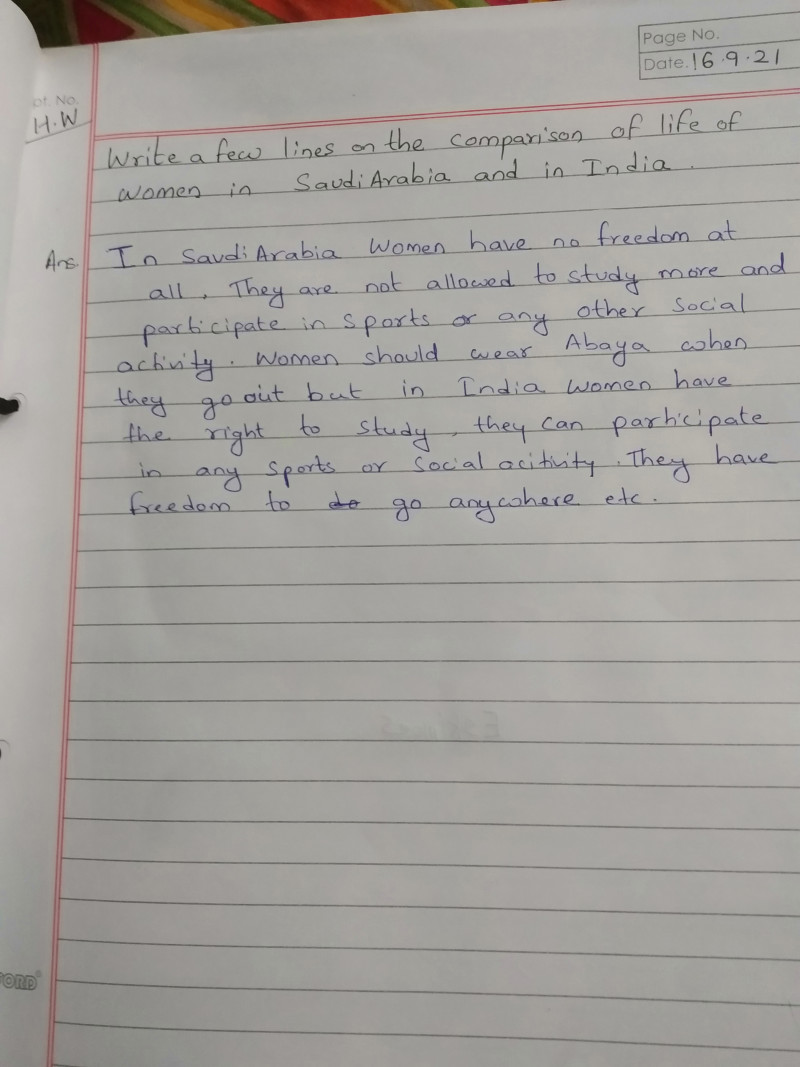 Page No.
Date. 16.9.21
ot. No.
H.W
Write a few lines on the comparison of life of
women in Saudi Arabia and in India.
Ans. In Saudi Arabia Women have no freedom at
all. They are not allowed to study more and
participate in sports or any other Social
activity. Women should wear Abaya when
they go out but in India women have
the right to study, they can participate
in any sports or social acitivity. They have
freedom to do go anywhere etc.
FORD